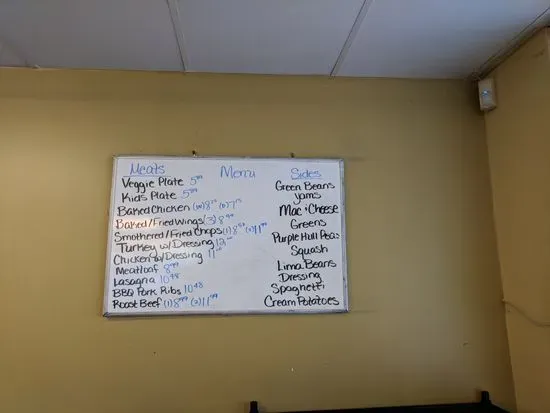 Meats Menu Sides
Veggie Plate 5
Kids Plate 5
Baked Chicken (W) 8 (D) 7
Baked/Fried Wings (3) 8⁹⁹
Smothered/Fried Chops (1) 8 (2) 11⁹⁹
Turkey w/Dressing 12
Chicken w/Dressing 11
Meatloaf 8⁹⁹
Lasagna 10
BBQ Pork Ribs 10
Roast Beef (1) 8⁹⁹ (2) 11⁹⁹
Green Beans
Yams
Mac & Cheese
Greens
Purple Hull Peas
Squash
Lima Beans
Dressing
Spaghetti
Cream Potatoes